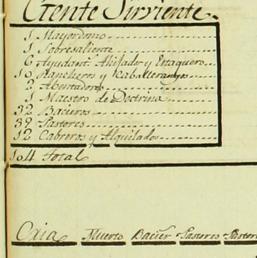 Gente Sirviente
1 Mayordomo
1 Sobresaliente
6 Ayudant.s Ahijador y Estaquero
10 Rancheros y Caballerangos
2 Abentadores
1 Maestro de Doctrina
32 Bacieros
39 Pastores
12 Cabreros y Alquilados
104 Total
Caja Muerto Bacier Pastores Pastore